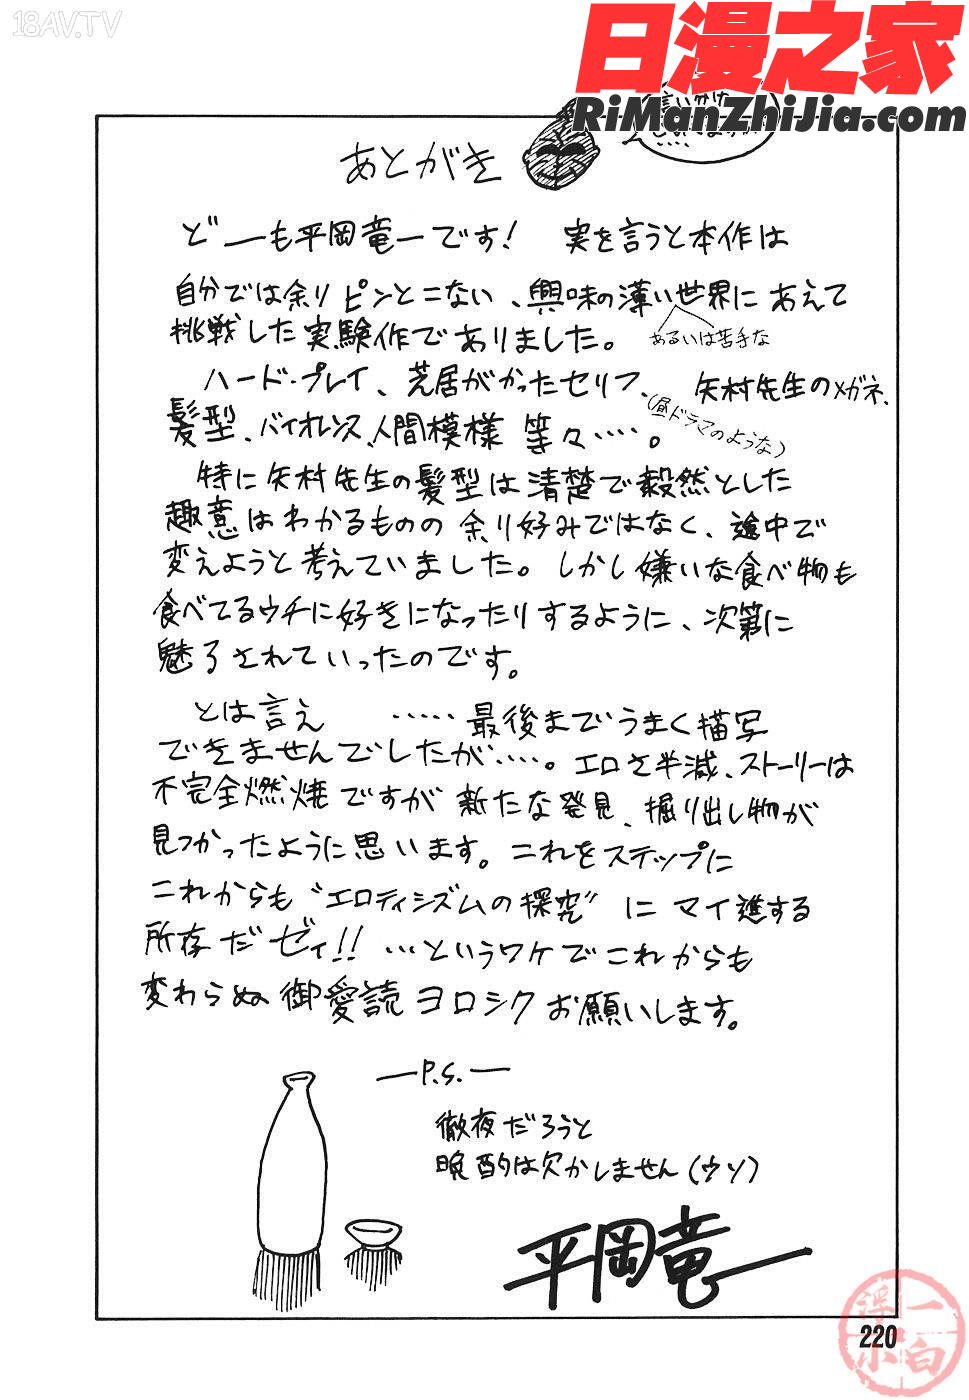 18AV.TV
日漫之家
RiManZhiJia.com
あとがき
どーも平岡竜一です! 実を言うと本作は
自分では余りピンとこない、興味の薄い世界にあえて
あるいは苦手な
挑戦した実験作でありました。
ハード・プレイ、芝居がかったセリフ、矢村先生のメガネ、
(昼ドラマのような)
髪型、バイオレンス、人間模様 等々・・・・。
特に矢村先生の髪型は清楚で毅然とした
趣意はわかるものの 余り好みではなく、途中で
変えようと考えていました。しかし嫌いな食べ物も
食べてるウチに好きになったりするように、次第に
魅了されていったのです。
とは言え ・・・・・最後までうまく描写
できませんでしたが・・・・。エロさ半減、ストーリーは
不完全燃焼ですが 新たな発見、掘り出し物が
見つかったように思います。これをステップに
これからも“エロティシズムの探究”に マイ進する
所存だゼィ!! …というワケで これからも
変わらぬ 御愛読 ヨロシク お願いします。
―P.S.―
徹夜だろうと
晩酌は欠かしません(ウソ)
平岡竜一
220